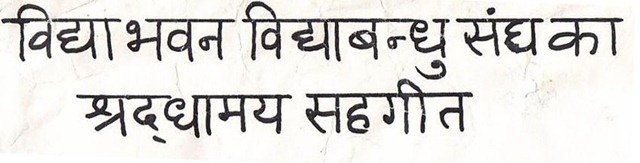 विद्या भवन विद्याबन्धु संघ का
श्रद्‌धामय सहगीत